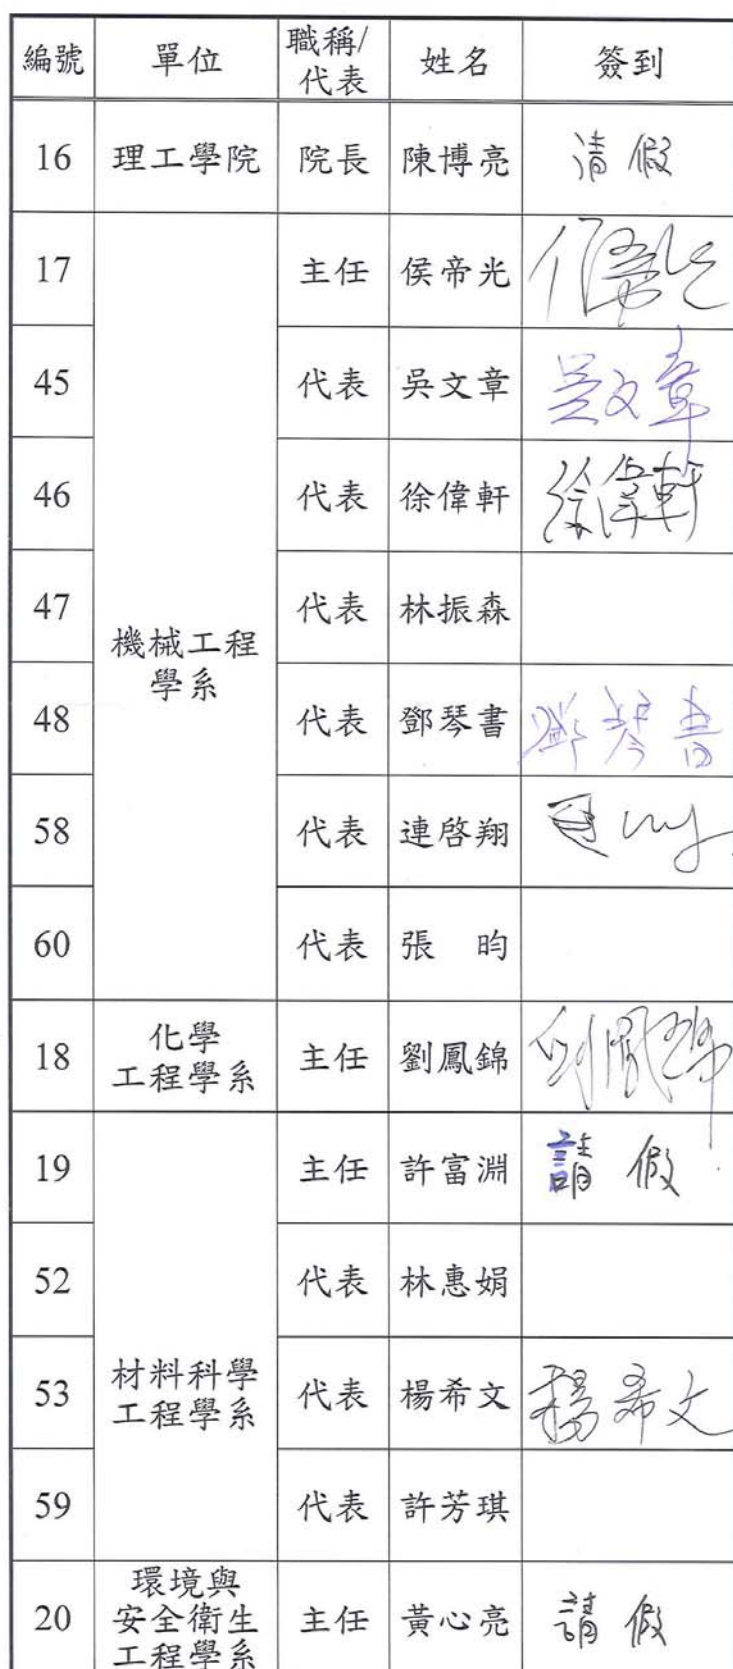 編號 單位 職稱/代表 姓名 簽到
16 理工學院 院長 陳博亮 請假
17 機械工程學系 主任 侯帝光 侯帝光
45 代表 吳文章 吳文章
46 代表 徐偉軒 徐偉軒
47 代表 林振森
48 代表 鄧琴書 鄧琴書
58 代表 連啓翔
60 代表 張 昀
18 化學工程學系 主任 劉鳳錦 劉鳳錦
19 材料科學工程學系 主任 許富淵 請假
52 代表 林惠娟
53 代表 楊希文 楊希文
59 代表 許芳琪
20 環境與安全衛生工程學系 主任 黃心亮 請假